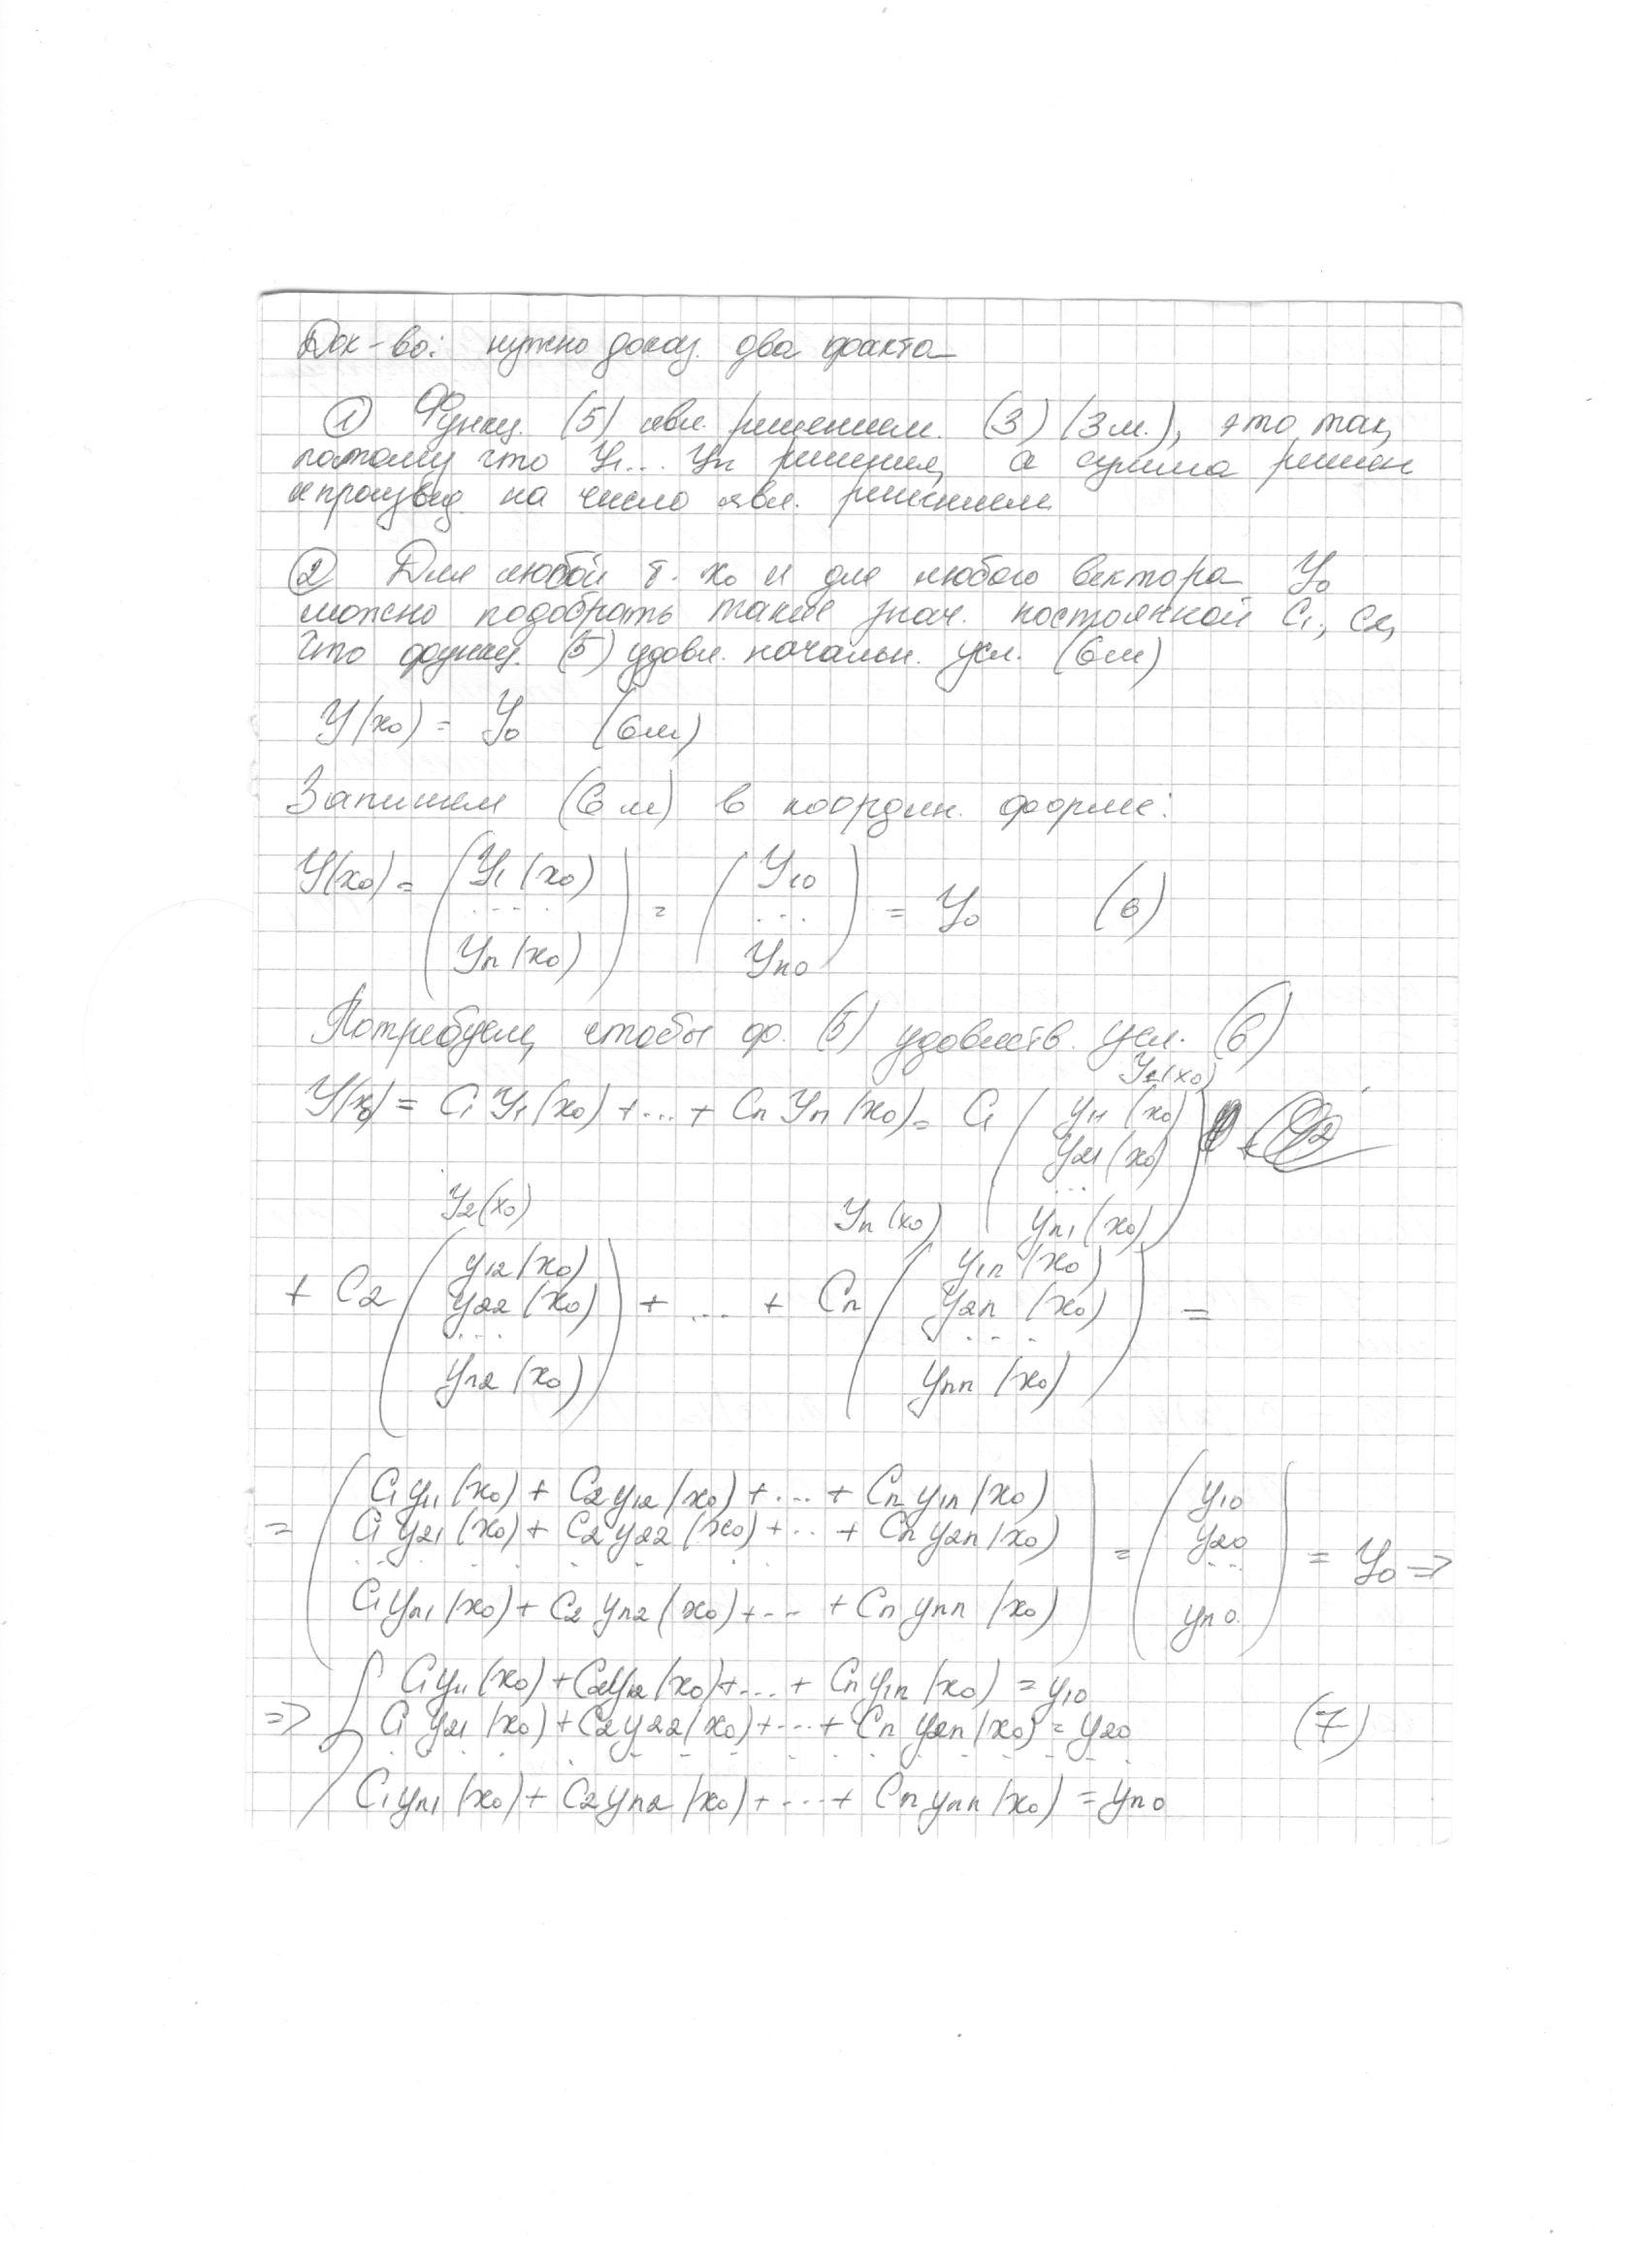 Док-во: нужно доказ. два факта
① Функц. (5) явл. решением. (3) (3м.), это так,
потому что Y₁... Yn решения, а сумма решен
и произвед. на число явл. решением
② Для любой т. x₀ и для любого вектора Y₀
можно подобрать такие знач. постоянной C₁, C2,
что функц. (5) удовл. начальн. усл. (6м)
Y(x₀) = Y₀ (6м)
Запишем (6м) в координ. форме:
Y(x₀) = ( Y₁(x₀) ... Yn(x₀) ) = ( Y₁₀ ... Yn₀ ) = Y₀ (6)
Потребуем, чтобы ф. (5) удовлетв. усл. (6)
Y₁(x₀)
Y(x₀) = C₁Y₁(x₀) + ... + CnYn(x₀) = C₁ ( y₁₁(x₀) y₂₁(x₀) ... yn₁(x₀) )
Y₂(x₀) Yn(x₀)
+ C₂ ( y₁₂(x₀) y₂₂(x₀) ... yn₂(x₀) ) + ... + Cn ( y₁n(x₀) y₂n(x₀) ... ynn(x₀) ) =
= ( C₁y₁₁(x₀) + C₂y₁₂(x₀) + ... + Cny₁n(x₀)
C₁y₂₁(x₀) + C₂y₂₂(x₀) + ... + Cny₂n(x₀)
...
C₁yn₁(x₀) + C₂yn₂(x₀) + ... + Cnynn(x₀) ) = ( y₁₀ y₂₀ ... yn₀ ) = Y₀ =>
=> { C₁y₁₁(x₀) + C₂y₁₂(x₀) + ... + Cny₁n(x₀) = y₁₀
C₁y₂₁(x₀) + C₂y₂₂(x₀) + ... + Cny₂n(x₀) = y₂₀ (7)
...
C₁yn₁(x₀) + C₂yn₂(x₀) + ... + Cnynn(x₀) = yn₀